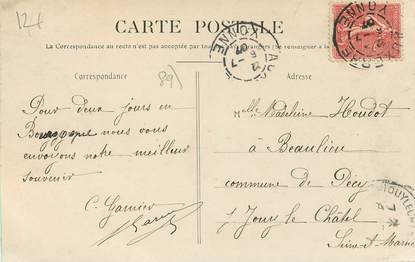 12
CARTE POSTALE
La Correspondance au recto n'est pas acceptée par tous
89)
Correspondance
Adresse
Pour deux jours en
Bourgogne nous vous
envoyons notre meilleur
souvenir
C. Garnier
Melle Madeleine Houdot
à Beaulieu
commune de Pécy
Jouy le Châtel
Seine et Marne
AUXERRE
YONNE
JOUY LE